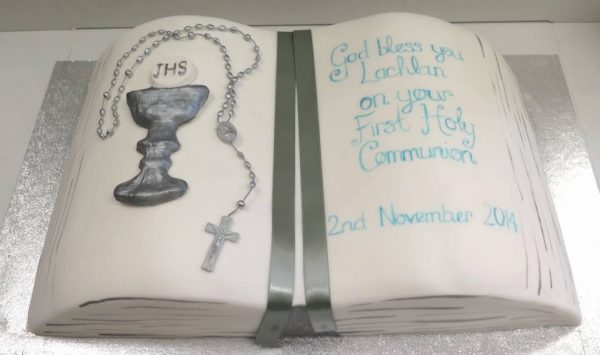 JHS
God bless you
Lachlan
on your
First Holy
Communion
2nd November 2014